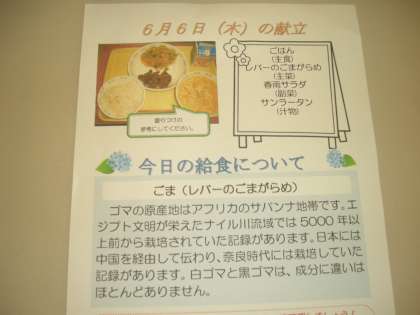 6月6日（木）の献立
ごはん
(主食)
レバーのごまがらめ
(主菜)
春雨サラダ
(副菜)
サンラータン
(汁物)
盛りつけの
参考にしてください。
今日の給食について
ごま（レバーのごまがらめ）
ゴマの原産地はアフリカのサバンナ地帯です。エ
ジプト文明が栄えたナイル川流域では5000年以
上前から栽培されていた記録があります。日本には
中国を経由して伝わり、奈良時代には栽培していた
記録があります。白ゴマと黒ゴマは、成分に違いは
ほとんどありません。